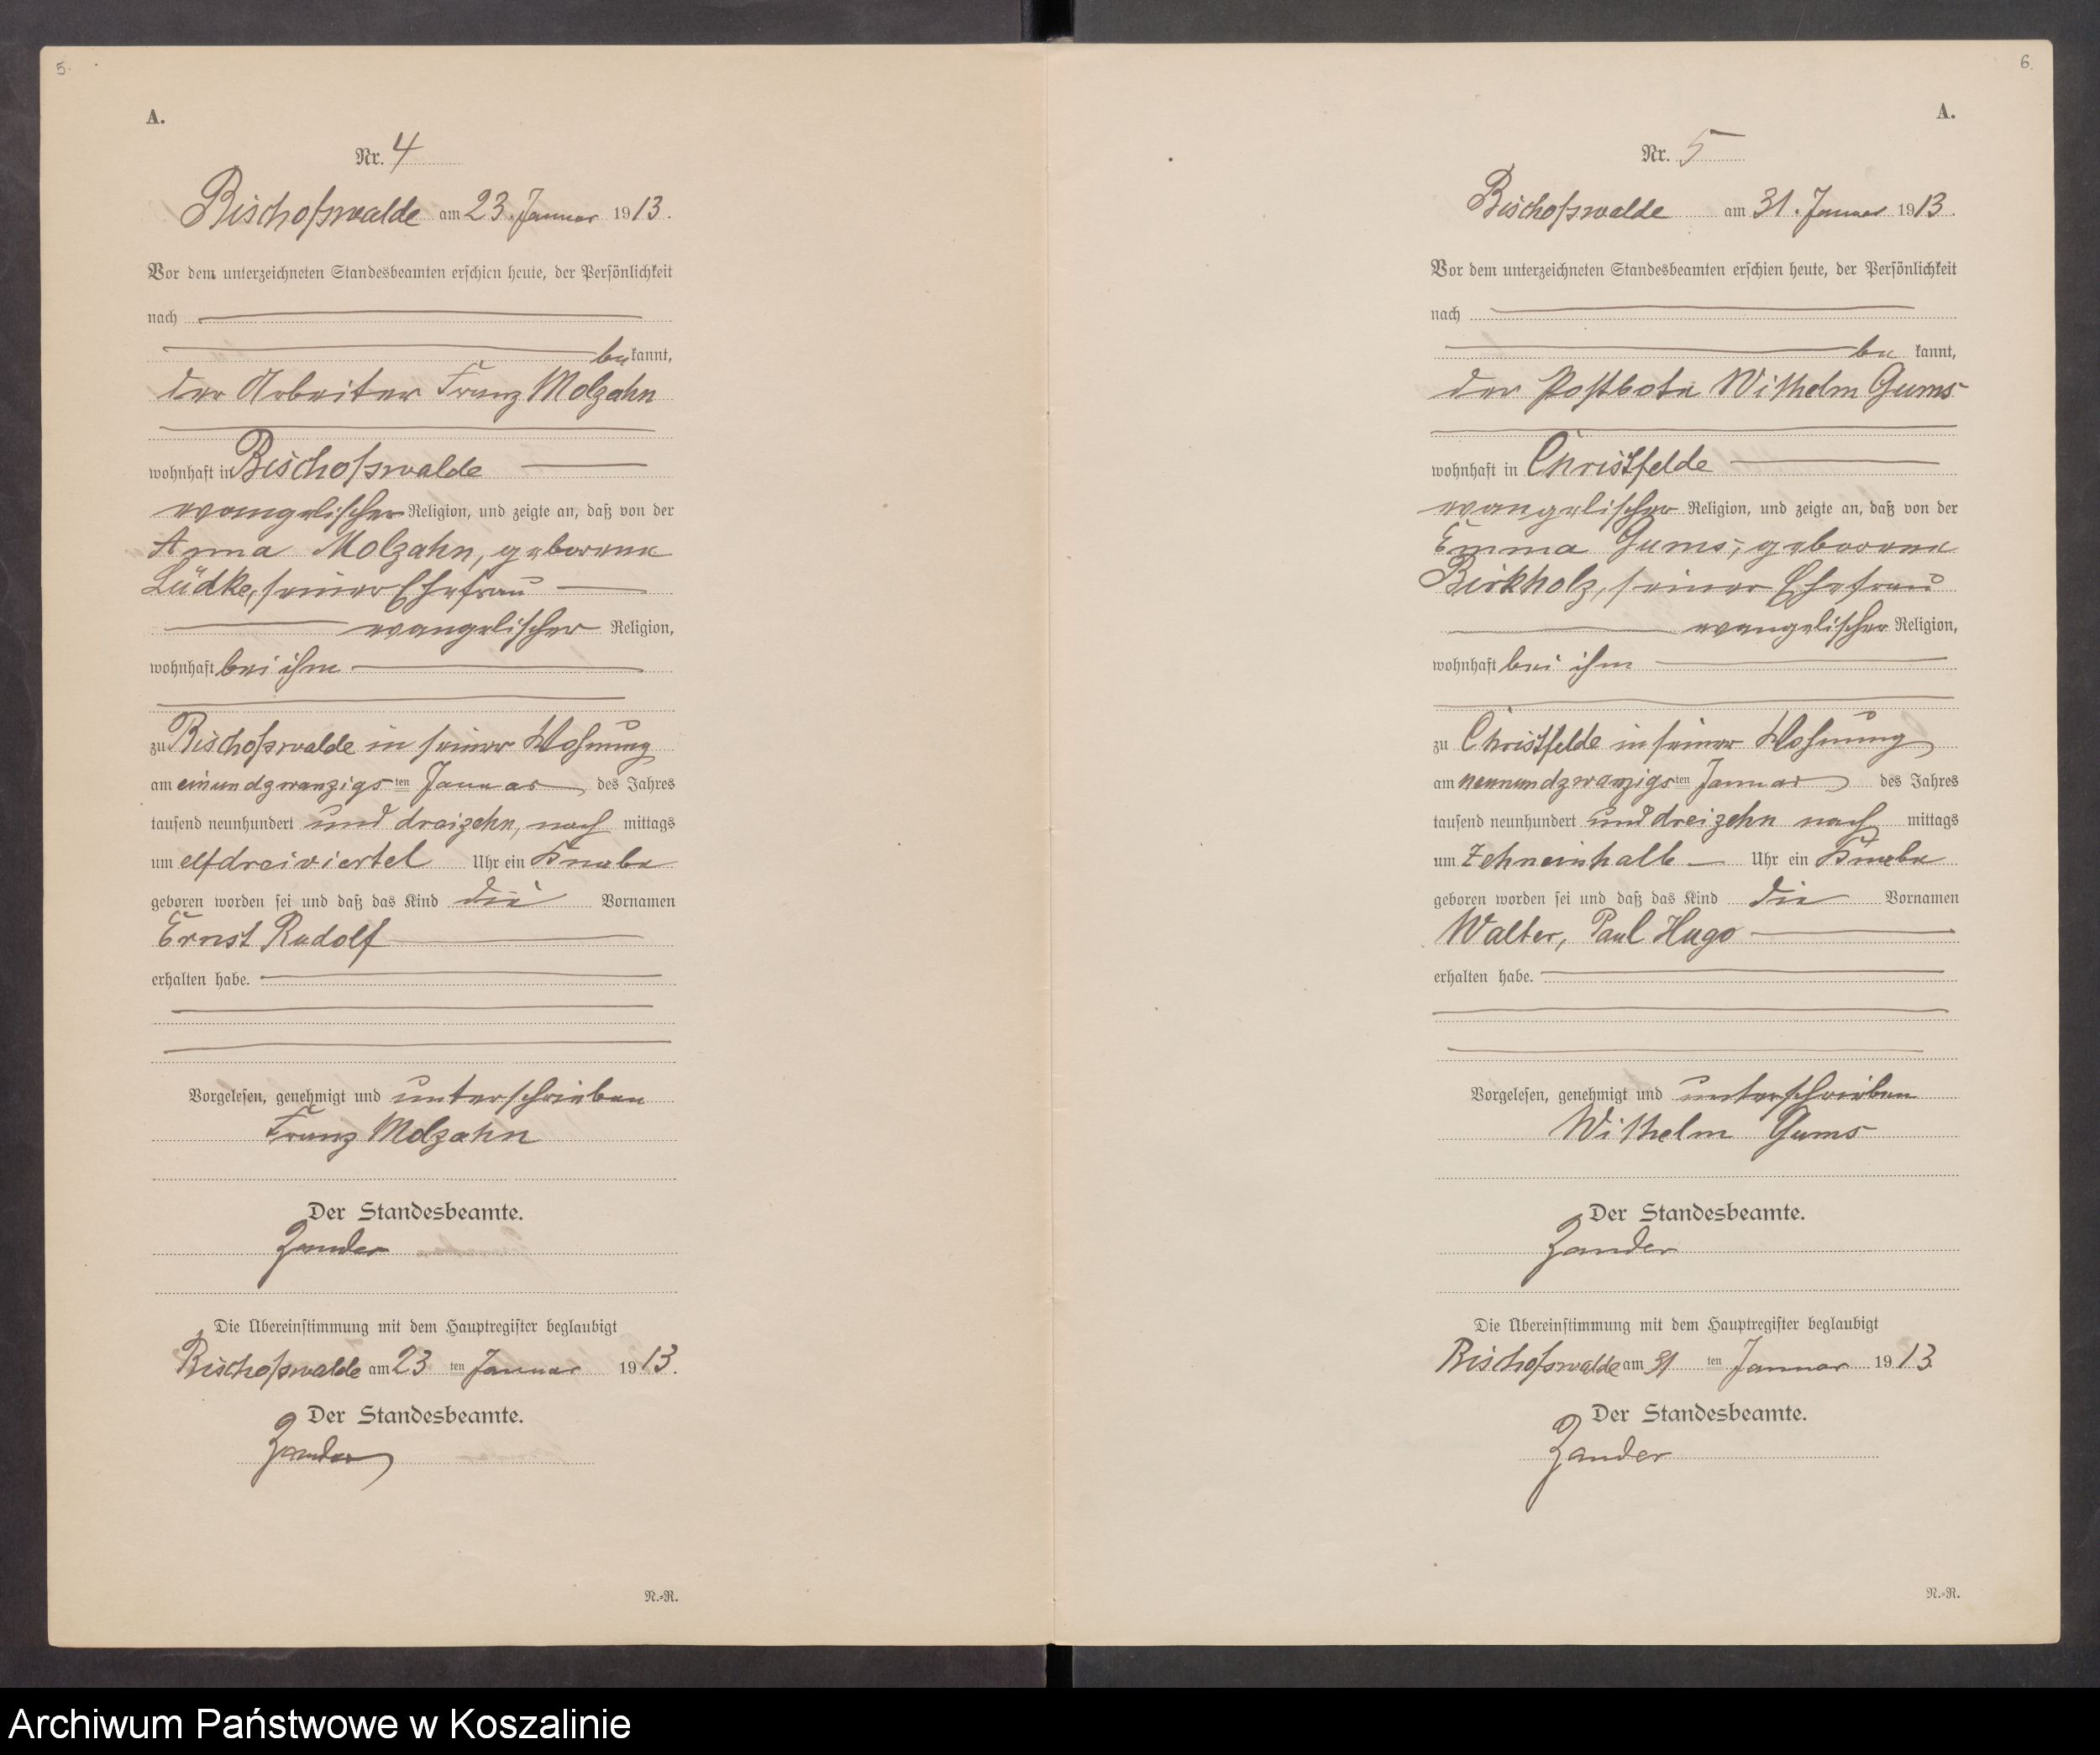 5.
A.
Nr. 4
Bischofswalde am 23. Januar 1913.
Vor dem unterzeichneten Standesbeamten erschien heute, der Persönlichkeit
nach
be kannt,
der Arbeiter Franz Molzahn
wohnhaft in Bischofswalde
evangelischer Religion, und zeigte an, daß von der
Anna Molzahn, geborene
Lüdke, seiner Ehefrau
evangelischer Religion,
wohnhaft bei ihm
zu Bischofswalde in seiner Wohnung
am einundzwanzigs ten Januar des Jahres
tausend neunhundert und dreizehn, nach mittags
um elfdreiviertel Uhr ein Knabe
geboren worden sei und daß das Kind die Vornamen
Ernst Rudolf
erhalten habe.
Vorgelesen, genehmigt und unterschrieben
Franz Molzahn
Der Standesbeamte.
Zander
Die Übereinstimmung mit dem Hauptregister beglaubigt
Bischofswalde am 23 ten Januar 1913.
Der Standesbeamte.
Zander
N.-R.
6.
A.
Nr. 5
Bischofswalde am 31. Januar 1913.
Vor dem unterzeichneten Standesbeamten erschien heute, der Persönlichkeit
nach
be kannt,
der Postbote Wilhelm Gums
wohnhaft in Christfelde
evangelischer Religion, und zeigte an, daß von der
Emma Gums, geborene
Birkholz, seiner Ehefrau
evangelischer Religion,
wohnhaft bei ihm
zu Christfelde in seiner Wohnung
am neunundzwanzigs ten Januar des Jahres
tausend neunhundert und dreizehn nach mittags
um zehneinhalb Uhr ein Knabe
geboren worden sei und daß das Kind die Vornamen
Walter, Paul Hugo
erhalten habe.
Vorgelesen, genehmigt und unterschrieben
Wilhelm Gums
Der Standesbeamte.
Zander
Die Übereinstimmung mit dem Hauptregister beglaubigt
Bischofswalde am 31 ten Januar 1913.
Der Standesbeamte.
Zander
N.-R.
Archiwum Państwowe w Koszalinie